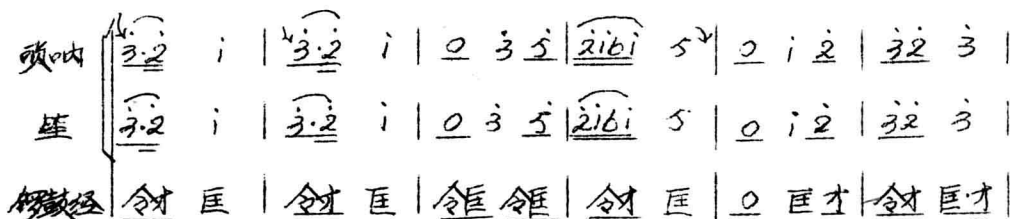 唢呐 3·2 i | 3·2 i | 0 3 5 | 2i6i 5 | 0 i 2 | 32 3 |
笙 3·2 i | 3·2 i | 0 3 5 | 2i6i 5 | 0 i 2 | 32 3 |
锣鼓经 令才 匡 | 令才 匡 | 令匡 令匡 | 令才 匡 | 0 匡 才 | 令才 匡·才 |